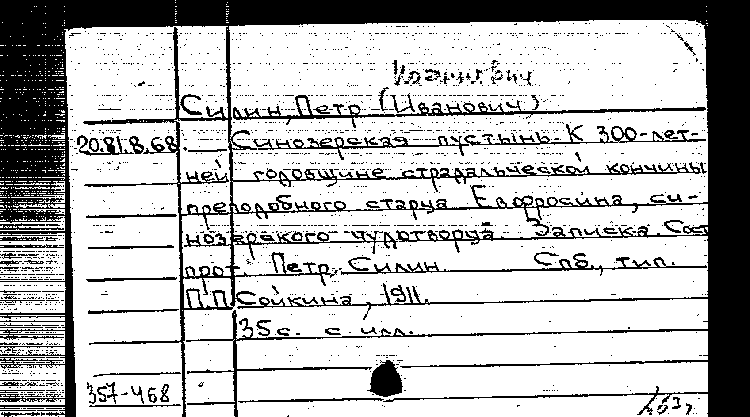 Иоаннович
Силин, Петр (Иванович)
20.81.8.68. Синозерская пустынь. К 300-лет-
ней годовщине страдальческой кончины
преподобного старца Евфросина, си-
нозерского чудотворца. Записка. Сост.
прот. Петр Силин. Спб., тип.
П.П. Сойкина, 1911.
35 с. с илл.
357-468